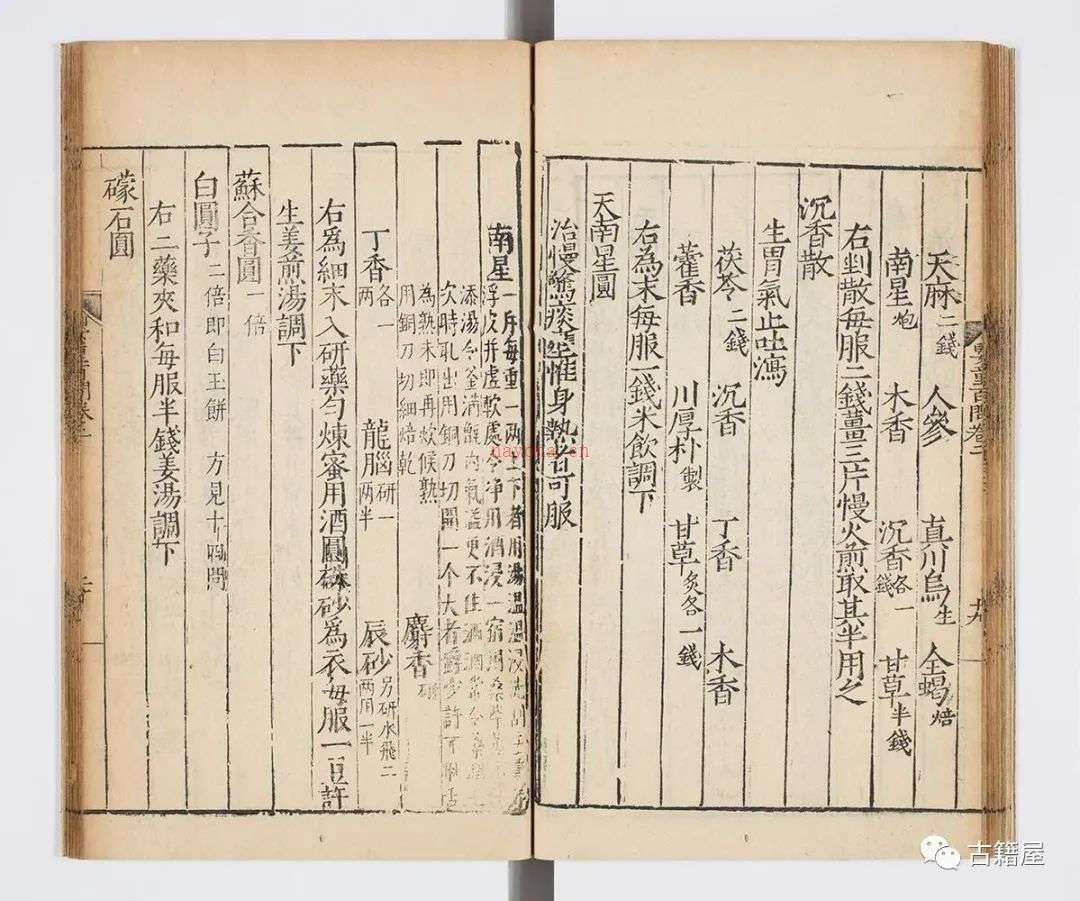 天麻二錢 人參 真川烏生 全蝎焙
南星炮 木香 沉香各一錢 甘草半錢
右剉散每服二錢薑三片慢火煎取其半用之
沉香散
生胃氣止吐瀉
茯苓二錢 沉香 丁香 木香
藿香 川厚朴製 甘草炙各一錢
右為末每服一錢米飲調下
天南星圓
治慢驚痰壅惟身熱者可服
南星一斤每重一兩上下者用湯
浮皮并虛軟處令净用酒浸一宿用桑柴
添湯令釜滿甑内氣
次時取出用銅刀切開一个大者嚼少許
為熟未即再炊候熟
用銅刀切細焙乾
麝香研
丁香各一兩 龍腦研一兩半 辰砂另研水飛二兩用一半
右爲細末入研藥勻煉蜜用酒圓砂爲衣每服一豆許
生姜煎湯調下
蘇合香圓一倍
白圓子二倍即白玉餅 方見十四問
右二藥夾和每服半錢姜湯調下
礞石圓
nayona.cn
古籍屋